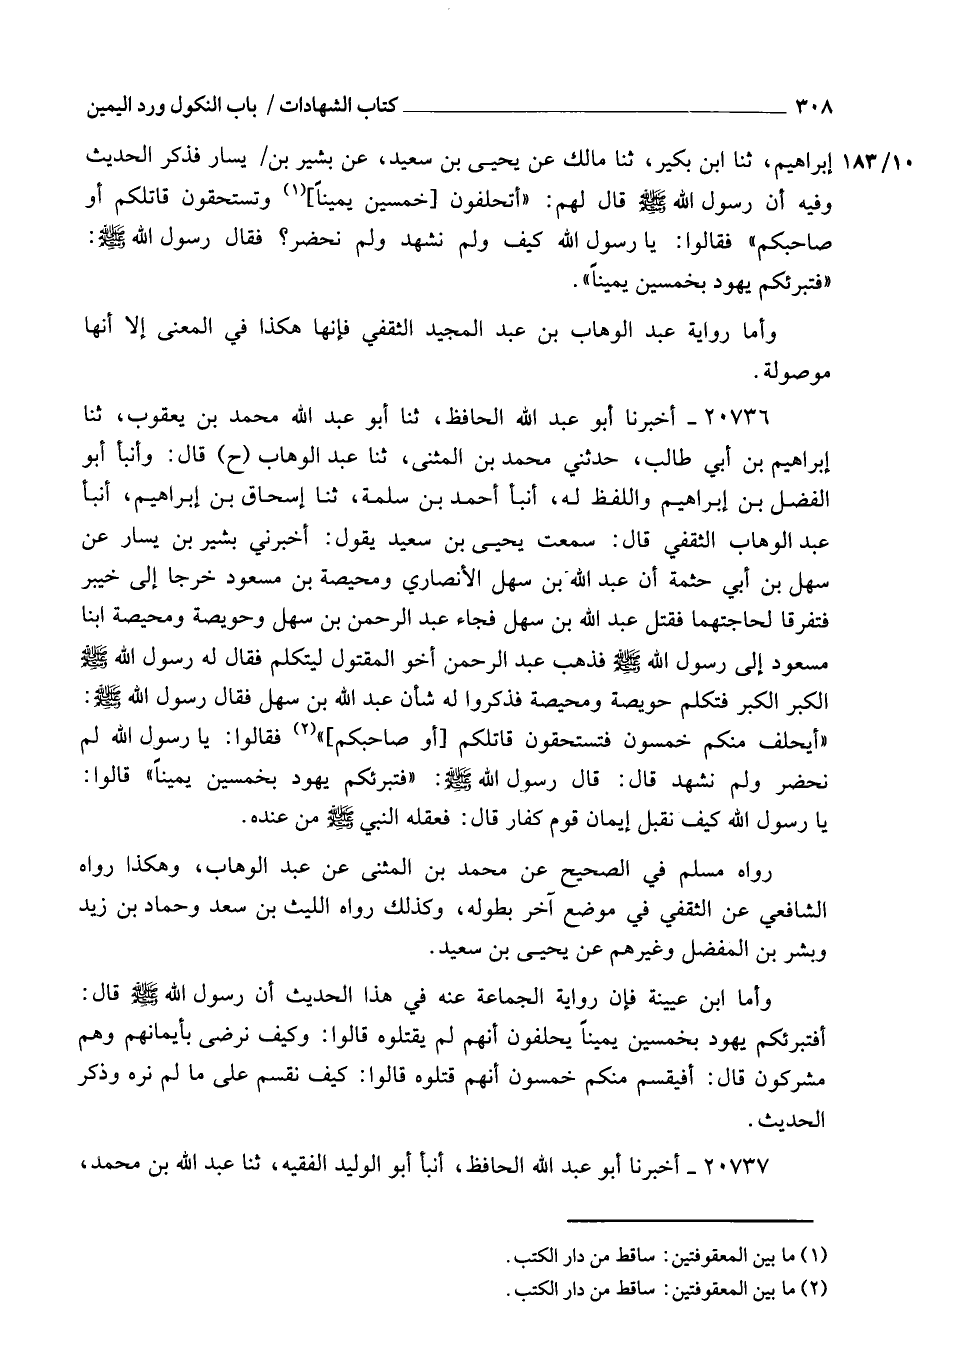 ٣٠٨ ــــــــــــــــ كتاب الشهادات / باب النكول ورد اليمين
١٨٣/١٠ إبراهيم، ثنا ابن بكير، ثنا مالك عن يحيى بن سعيد، عن بشير بن/ يسار فذكر الحديث
وفيه أن رسول الله ﷺ قال لهم: «أتحلفون [خمسين يميناً](١) وتستحقون قاتلكم أو
صاحبكم» فقالوا: يا رسول الله كيف ولم نشهد ولم نحضر؟ فقال رسول الله ﷺ:
«فتبرئكم يهود بخمسين يميناً».
وأما رواية عبد الوهاب بن عبد المجيد الثقفي فإنها هكذا في المعنى إلا أنها
موصولة.
٢٠٧٣٦ ـ أخبرنا أبو عبد الله الحافظ، ثنا أبو عبد الله محمد بن يعقوب، ثنا
إبراهيم بن أبي طالب، حدثني محمد بن المثنى، ثنا عبد الوهاب (ح) قال: وأنبأ أبو
الفضل بن إبراهيم واللفظ له، أنبأ أحمد بن سلمة، ثنا إسحاق بن إبراهيم، أنبأ
عبد الوهاب الثقفي قال: سمعت يحيى بن سعيد يقول: أخبرني بشير بن يسار عن
سهل بن أبي حثمة أن عبد الله بن سهل الأنصاري ومحيصة بن مسعود خرجا إلى خيبر
فتفرقا لحاجتهما فقتل عبد الله بن سهل فجاء عبد الرحمن بن سهل وحويصة ومحيصة ابنا
مسعود إلى رسول الله ﷺ فذهب عبد الرحمن أخو المقتول ليتكلم فقال له رسول الله ﷺ
الكبر الكبر فتكلم حويصة ومحيصة فذكروا له شأن عبد الله بن سهل فقال رسول الله ﷺ:
«أيحلف منكم خمسون فتستحقون قاتلكم [أو صاحبكم]»(٢) فقالوا: يا رسول الله لم
نحضر ولم نشهد قال: قال رسول الله ﷺ: «فتبرئكم يهود بخمسين يميناً» قالوا:
يا رسول الله كيف نقبل إيمان قوم كفار قال: فعقله النبي ﷺ من عنده.
رواه مسلم في الصحيح عن محمد بن المثنى عن عبد الوهاب، وهكذا رواه
الشافعي عن الثقفي في موضع آخر بطوله، وكذلك رواه الليث بن سعد وحماد بن زيد
وبشر بن المفضل وغيرهم عن يحيى بن سعيد.
وأما ابن عيينة فإن رواية الجماعة عنه في هذا الحديث أن رسول الله ﷺ قال:
أفتبرئكم يهود بخمسين يميناً يحلفون أنهم لم يقتلوه قالوا: وكيف نرضى بأيمانهم وهم
مشركون قال: أفيقسم منكم خمسون أنهم قتلوه قالوا: كيف نقسم على ما لم نره وذكر
الحديث.
٢٠٧٣٧ ـ أخبرنا أبو عبد الله الحافظ، أنبأ أبو الوليد الفقيه، ثنا عبد الله بن محمد،
(١) ما بين المعقوفتين: ساقط من دار الكتب.
(٢) ما بين المعقوفتين: ساقط من دار الكتب.